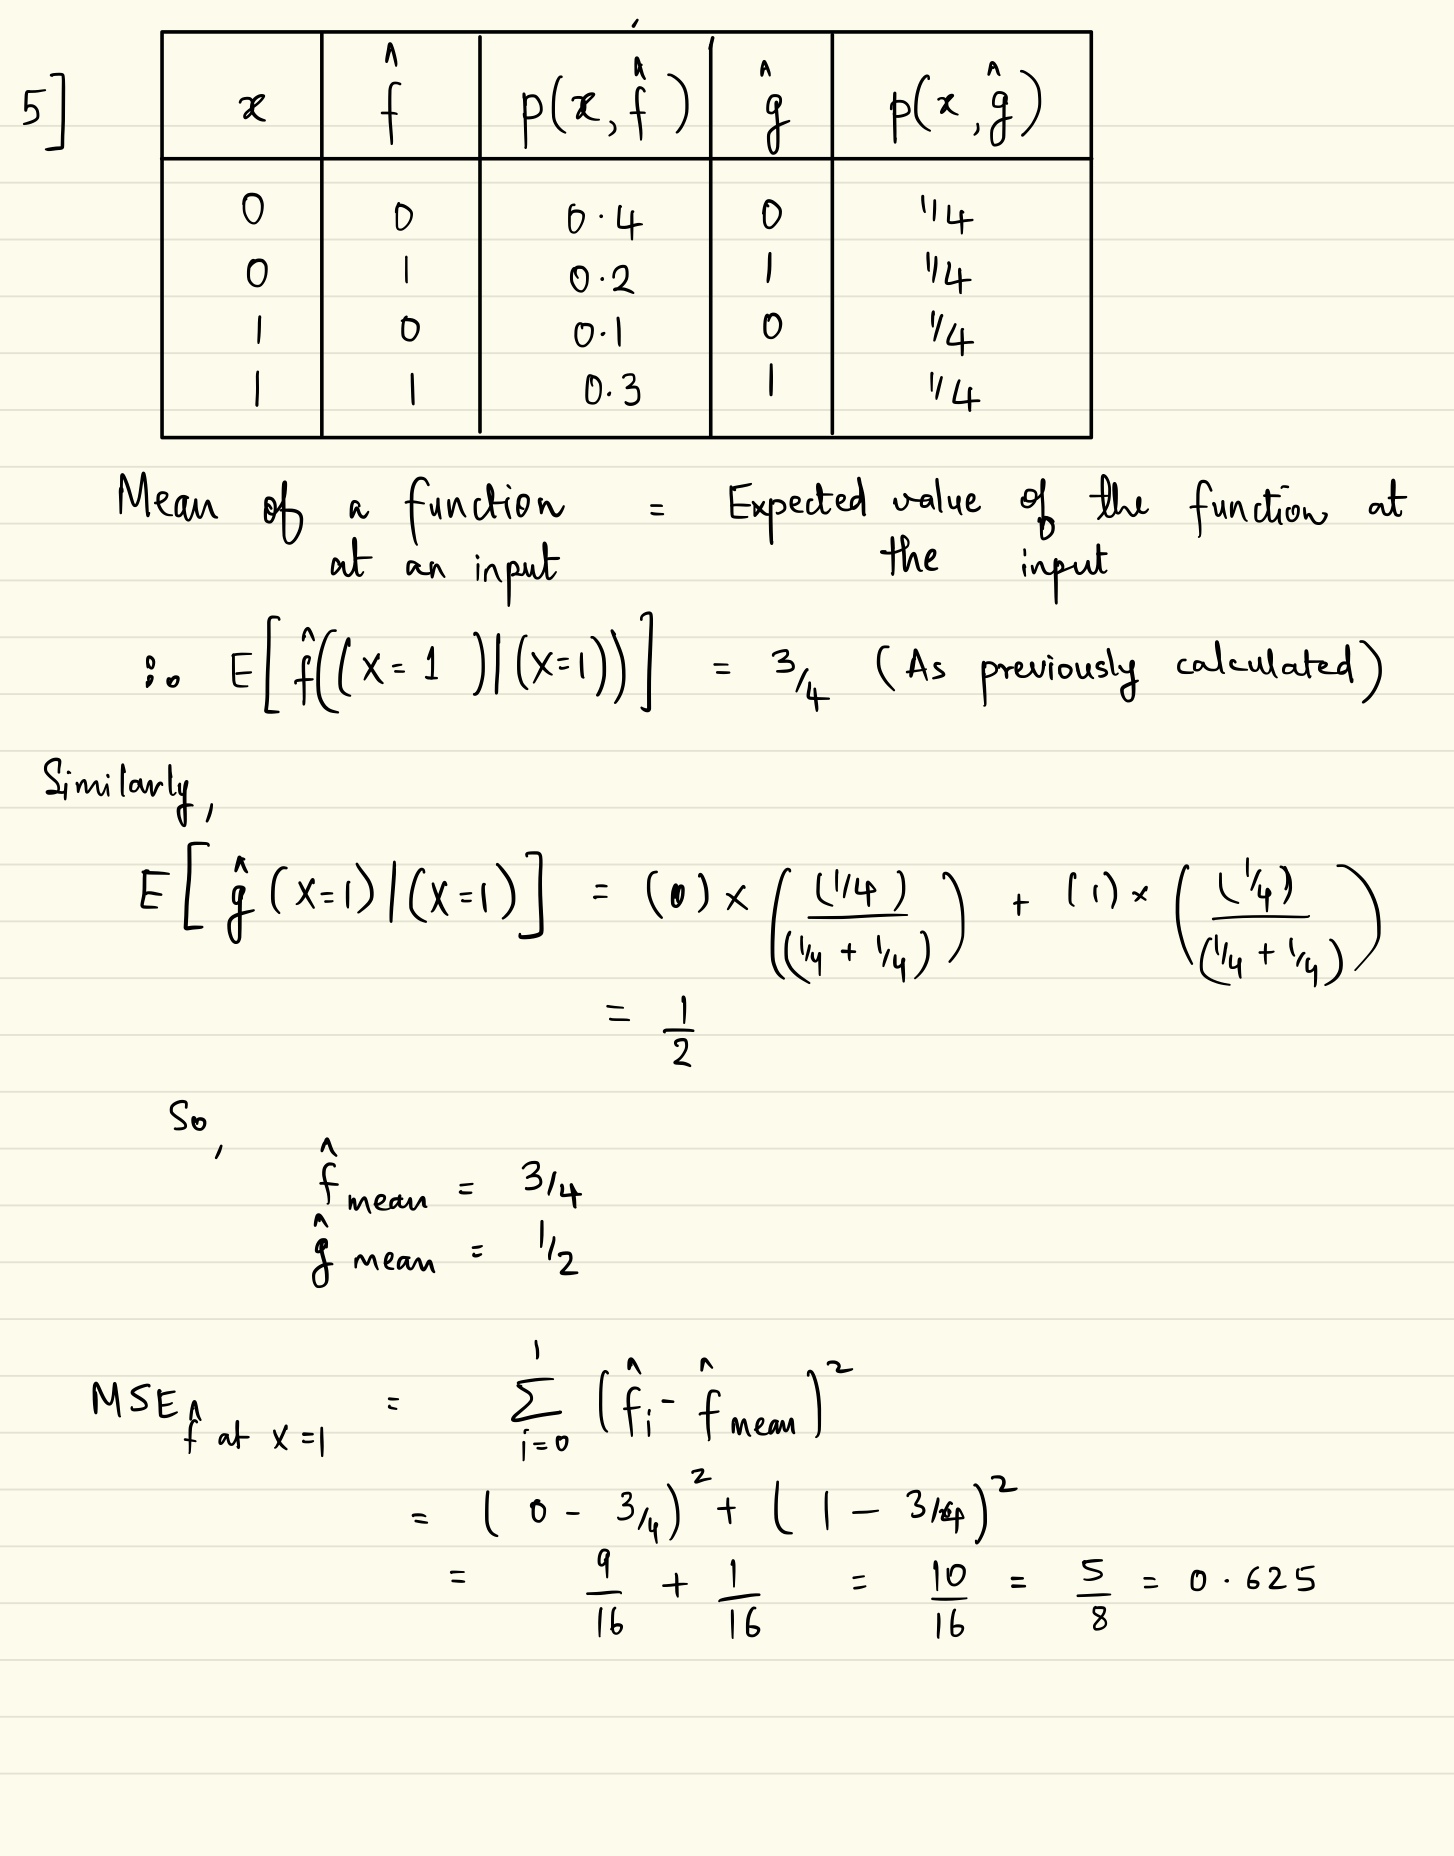 5]
x f̂ p(x, f̂) ĝ p(x, ĝ)
0 0 0.4 0 1/4
0 1 0.2 1 1/4
1 0 0.1 0 1/4
1 1 0.3 1 1/4
Mean of a function = Expected value of the function at
at an input the input
∴ E[f̂((X=1)|(X=1))] = 3/4 (As previously calculated)
Similarly,
E[ĝ(X=1)|(X=1)] = (0) × ((1/4)/(1/4 + 1/4)) + (1) × ((1/4)/(1/4 + 1/4))
= 1/2
So,
f̂ mean = 3/4
ĝ mean = 1/2
MSE f̂ at X=1 = Σ_{i=0}^{1} (f̂_i - f̂_mean)²
= (0 - 3/4)² + (1 - 3/4)²
= 9/16 + 1/16 = 10/16 = 5/8 = 0.625